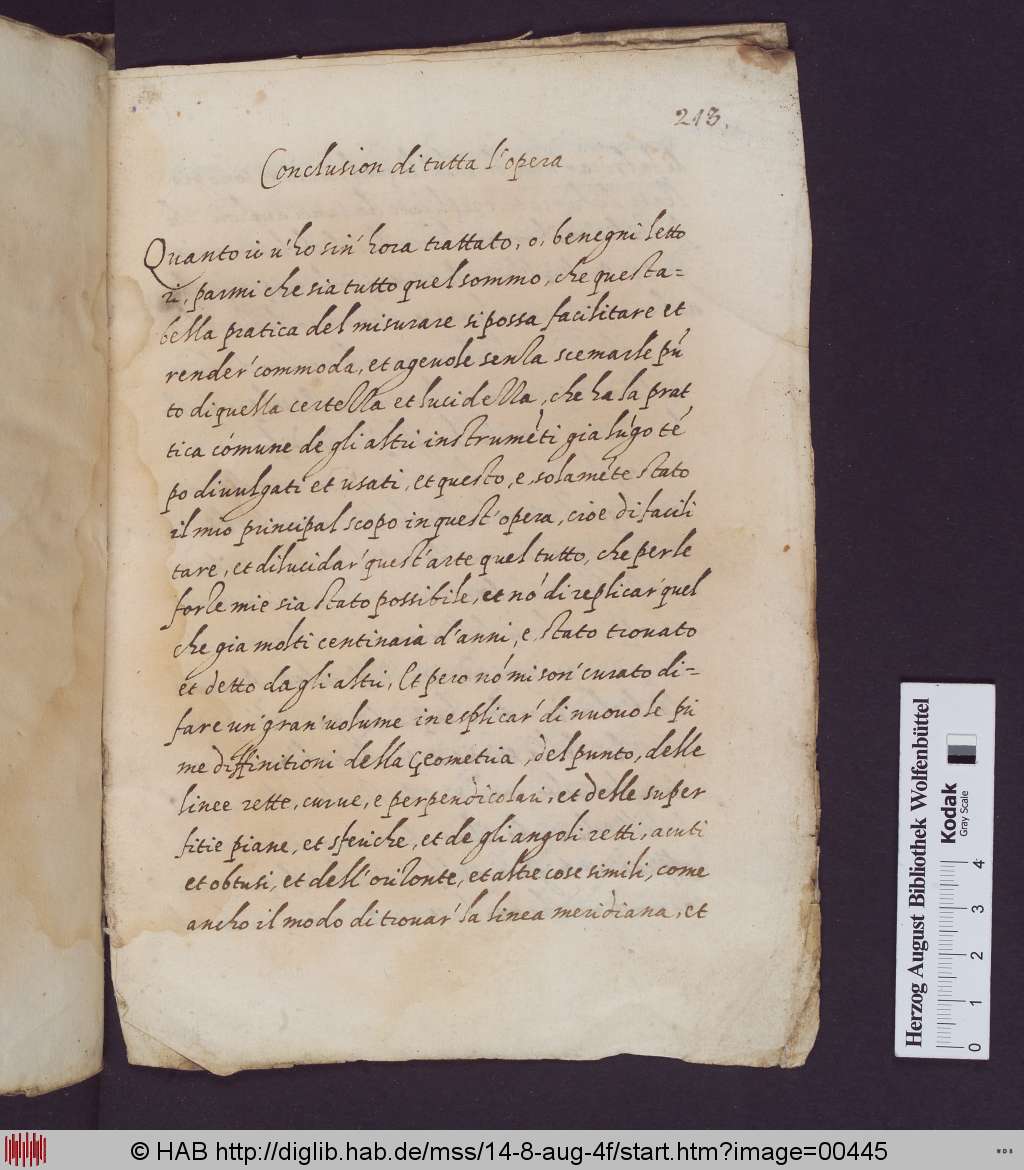 213.
Conclusion di tutta l'opera
Quanto io v'ho sin' hora trattato, o, benegni letto
ri, parmi che sia tutto quel sommo, che questa=
bella pratica del misurare si possa facilitare et
render' commoda, et agevole senza scemarle pū
to di quella certezza et lucidezza, che ha la prat
tica cómune de gli altri instrumēti gia lūgo tē
po divulgati et usati, et questo, e, solamēte stato
il mio principal scopo in quest'opera, cioe di facili
tare, et dilucidar' quest'arte quel tutto, che per le
forze mie sia stato possibile, et nō di replicar' quel
che gia molti centinaia d'anni, e, stato trovato
et detto da gli altri, Et pero nō mi son' curato di=
fare un' gran' volume in esplicar' di nuovo le pri
me diffinitioni della Geometria, del punto, delle
linee rette, curve, e perpendicolari, et delle super
fitie piane, et sferiche, et de gli angoli retti, acuti
et obtusi, et dell'orizonte, et altre cose simili, come
ancho il modo di trovar' la linea meridiana, et
Herzog August Bibliothek Wolfenbüttel
Kodak
Gray Scale
0 1 2 3 4
© HAB http://diglib.hab.de/mss/14-8-aug-4f/start.htm?image=00445